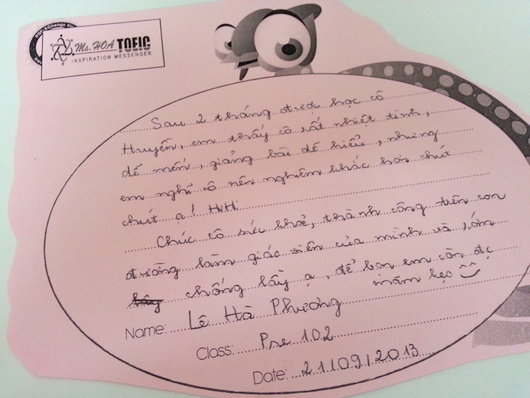 Ms. HOA TOEIC
INSPIRATION MESSENGER
Sau 2 tháng được học cô
Huyền, em thấy cô rất nhiệt tình,
dễ mến, giảng bài dễ hiểu, nhưng
em nghĩ cô nên nghiêm khắc hơn chút
chút ạ! HiHi
Chúc cô sức khoẻ, thành công trên con
đường làm giáo viên của mình và sớm
chồng lầy ạ, để bọn em còn đc
măm kẹo
Name: Lê Hà Phương
Class: Pre 102
Date: 21/09/2013